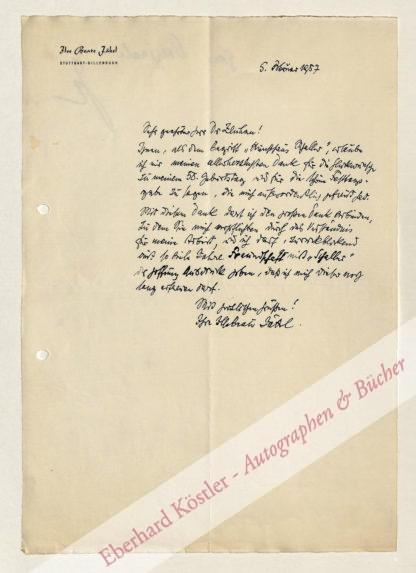 Ilse Beate Jäkel
STUTTGART-SILLENBUCH
5. Februar 1957
Sehr geehrter Herr Dr.
Ihnen, als dem Begriff „Kunsthaus Schaller“, erlaube
ich mir meinen allerherzlichsten Dank für die Glückwünsche
zu meinem 50. Geburtstag und für die schöne Festtags-
gabe zu sagen, die mich außerordentlich gefreut hat.
Mit diesem Dank darf ich den großen Dank verbinden,
zu dem Sie mich verpflichten durch das Verständnis
für meine Arbeit, und ich darf, zurückblickend
auf so viele Jahre Freundschaft mit „Schaller“
der Hoffnung Ausdruck geben, daß ich mich dieser noch
lang erfreuen darf.
Mit herzlichen Grüßen!
Ihre Jäkel.
Eberhard Köstler - Autographen & Bücher